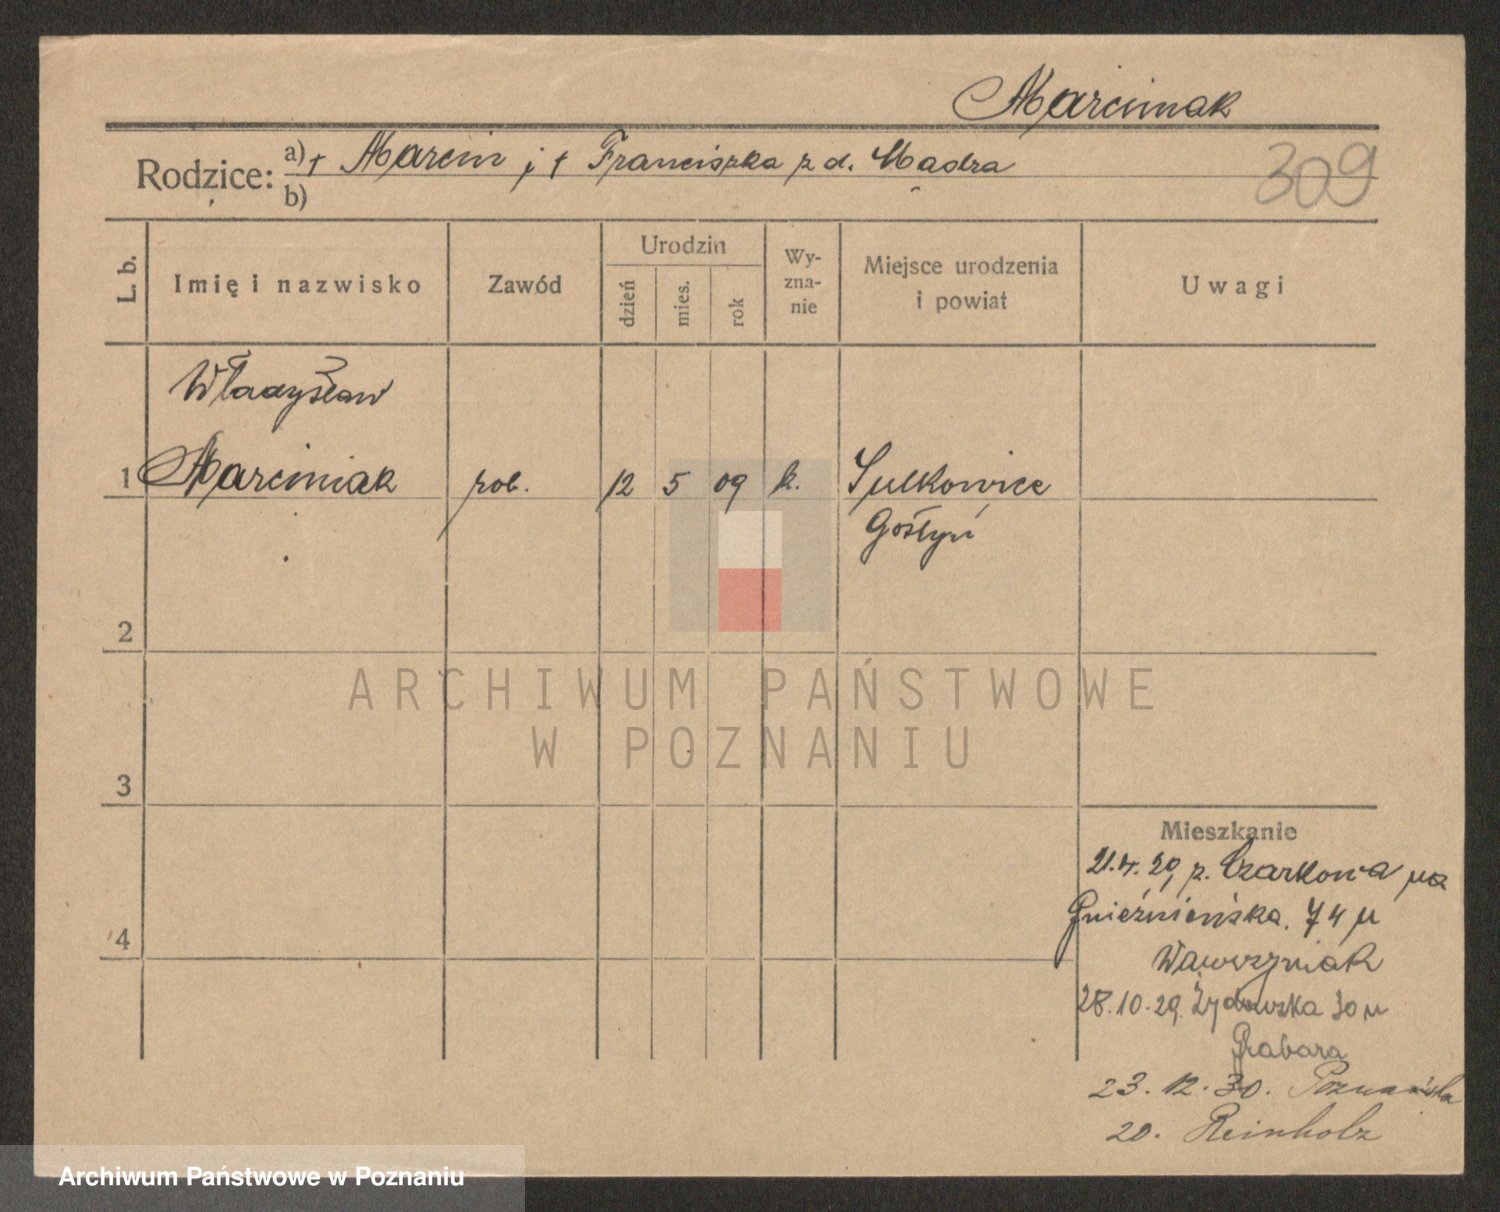 Marciniak
Rodzice: a) † Marcin i † Franciszka z d. Mądra
b)
309
L. b.
Imię i nazwisko
Zawód
Urodzin
dzień
mies.
rok
Wy-
zna-
nie
Miejsce urodzenia
i powiat
Uwagi
Władysław
1 Marciniak rob. 12 5 09 k. Sułkowice
Gostyń
2
ARCHIWUM PAŃSTWOWE
W POZNANIU
3
Mieszkanie
21.4.29, z. Czarkowa na
Gnieźnieńska. 74 u
Wawrzyniak
4
28.10.29. Żydowska 30 u
Grabara
23.12.30. Poznańska
20. Reinholz
Archiwum Państwowe w Poznaniu